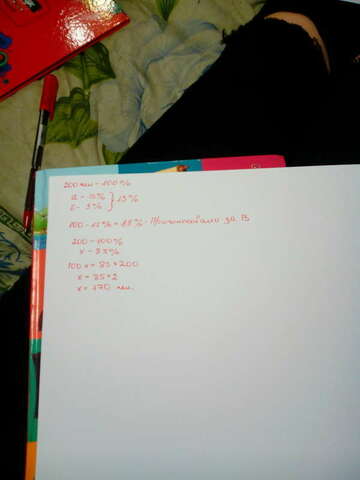 200 чел - 100%
а - 10% } 15%
Б - 5%
100 - 15% = 85% - Проголосовали за В
200 - 100%
x - 85%
100x = 85 * 200
x = 85 * 2
x = 170 чел.